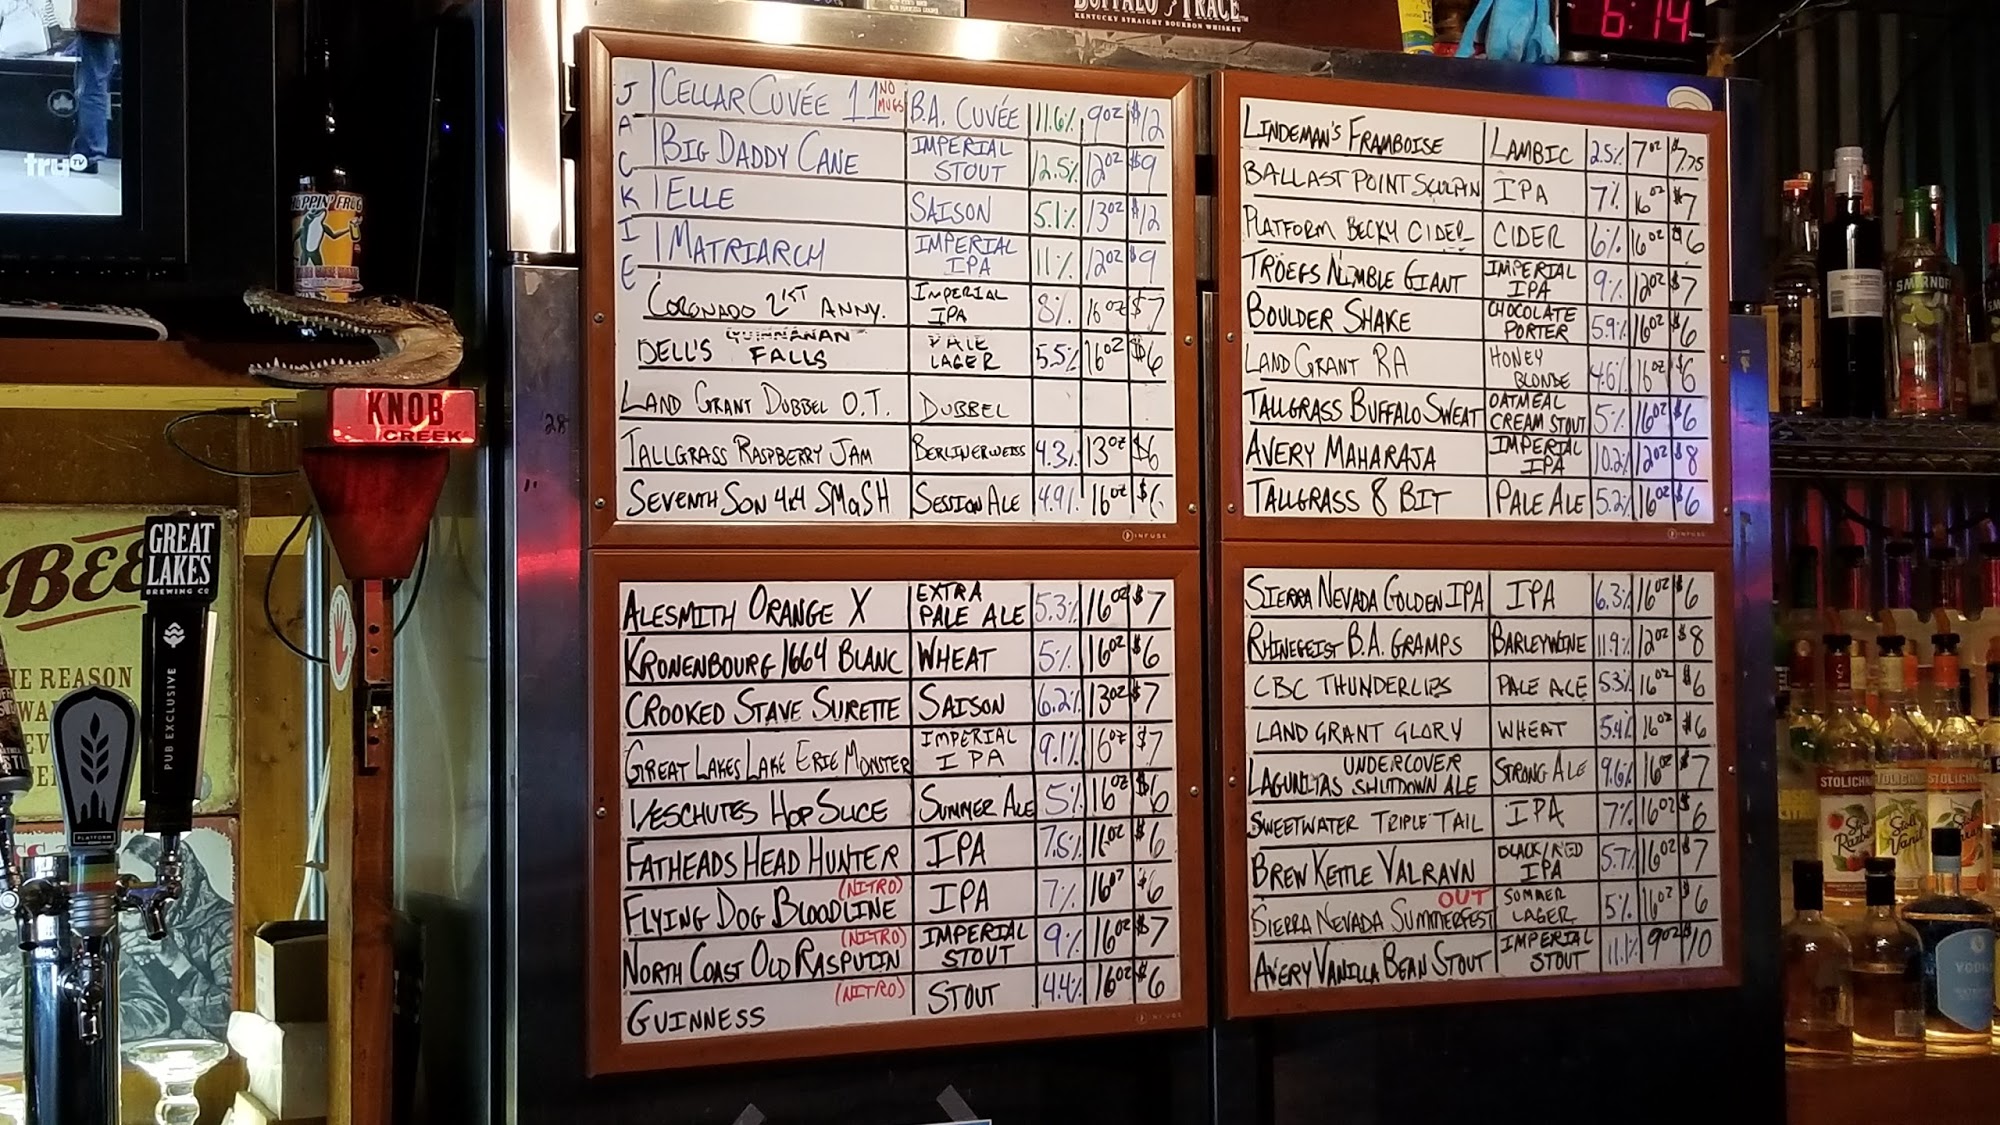 BUFFALO TRACE
KENTUCKY STRAIGHT BOURBON WHISKEY
6:14
truTV
HOPPIN' FROG
KNOB
CREEK
GREAT
LAKES
BREWING CO
PUB EXCLUSIVE
PLATFORM
BEE
REASON
JACKIE
CELLAR CUVÉE 11 NO MUGS B.A. CUVÉE 11.6% 9oz $12
BIG DADDY CANE IMPERIAL STOUT 12.5% 12oz $9
ELLE SAISON 5.1% 13oz $12
MATRIARCH IMPERIAL IPA 11% 12oz $9
CORONADO 21ST ANNY. IMPERIAL IPA 8% 16oz $7
BELL'S QUINNANAN FALLS PALE LAGER 5.5% 16oz $6
LAND GRANT DUBBEL O.T. DUBBEL
TALLGRASS RASPBERRY JAM BERLINERWEISS 4.3% 13oz $6
SEVENTH SON 4x4 SMaSH SESSION ALE 4.9% 16oz $6
INFUSE
ALESMITH ORANGE X EXTRA PALE ALE 5.3% 16oz $7
KRONENBOURG 1664 BLANC WHEAT 5% 16oz $6
CROOKED STAVE SURETTE SAISON 6.2% 13oz $7
GREAT LAKES LAKE ERIE MONSTER IMPERIAL IPA 9.1% 16oz $7
DESCHUTES HOP SLICE SUMMER ALE 5% 16oz $6
FATHEADS HEAD HUNTER IPA 7.5% 16oz $6
FLYING DOG BLOODLINE (NITRO) IPA 7% 16oz $6
NORTH COAST OLD RASPUTIN (NITRO) IMPERIAL STOUT 9% 16oz $7
GUINNESS (NITRO) STOUT 4.4% 16oz $6
INFUSE
LINDEMAN'S FRAMBOISE LAMBIC 2.5% 7oz $7.75
BALLAST POINT SCULPIN IPA 7% 16oz $7
PLATFORM BECKY CIDER CIDER 6% 16oz $6
TROEGS NIMBLE GIANT IMPERIAL IPA 9% 12oz $7
BOULDER SHAKE CHOCOLATE PORTER 5.9% 16oz $6
LAND GRANT RA HONEY BLONDE 4.6% 16oz $6
TALLGRASS BUFFALO SWEAT OATMEAL CREAM STOUT 5% 16oz $6
AVERY MAHARAJA IMPERIAL IPA 10.2% 12oz $8
TALLGRASS 8 BIT PALE ALE 5.2% 16oz $6
INFUSE
SIERRA NEVADA GOLDEN IPA IPA 6.3% 16oz $6
RHINEGEIST B.A. GRAMPS BARLEYWINE 11.9% 12oz $8
CBC THUNDERLIPS PALE ALE 5.3% 16oz $6
LAND GRANT GLORY WHEAT 5.4% 16oz $6
LAGUNITAS UNDERCOVER SHUTDOWN ALE STRONG ALE 9.6% 16oz $7
SWEETWATER TRIPLE TAIL IPA 7% 16oz $6
BREW KETTLE VALRAVN BLACK/RED IPA 5.7% 16oz $7
SIERRA NEVADA SUMMERFEST OUT SUMMER LAGER 5% 16oz $6
AVERY VANILLA BEAN STOUT IMPERIAL STOUT 11.1% 9oz $10
SMIRNOFF
STOLICHNAYA
VODKA